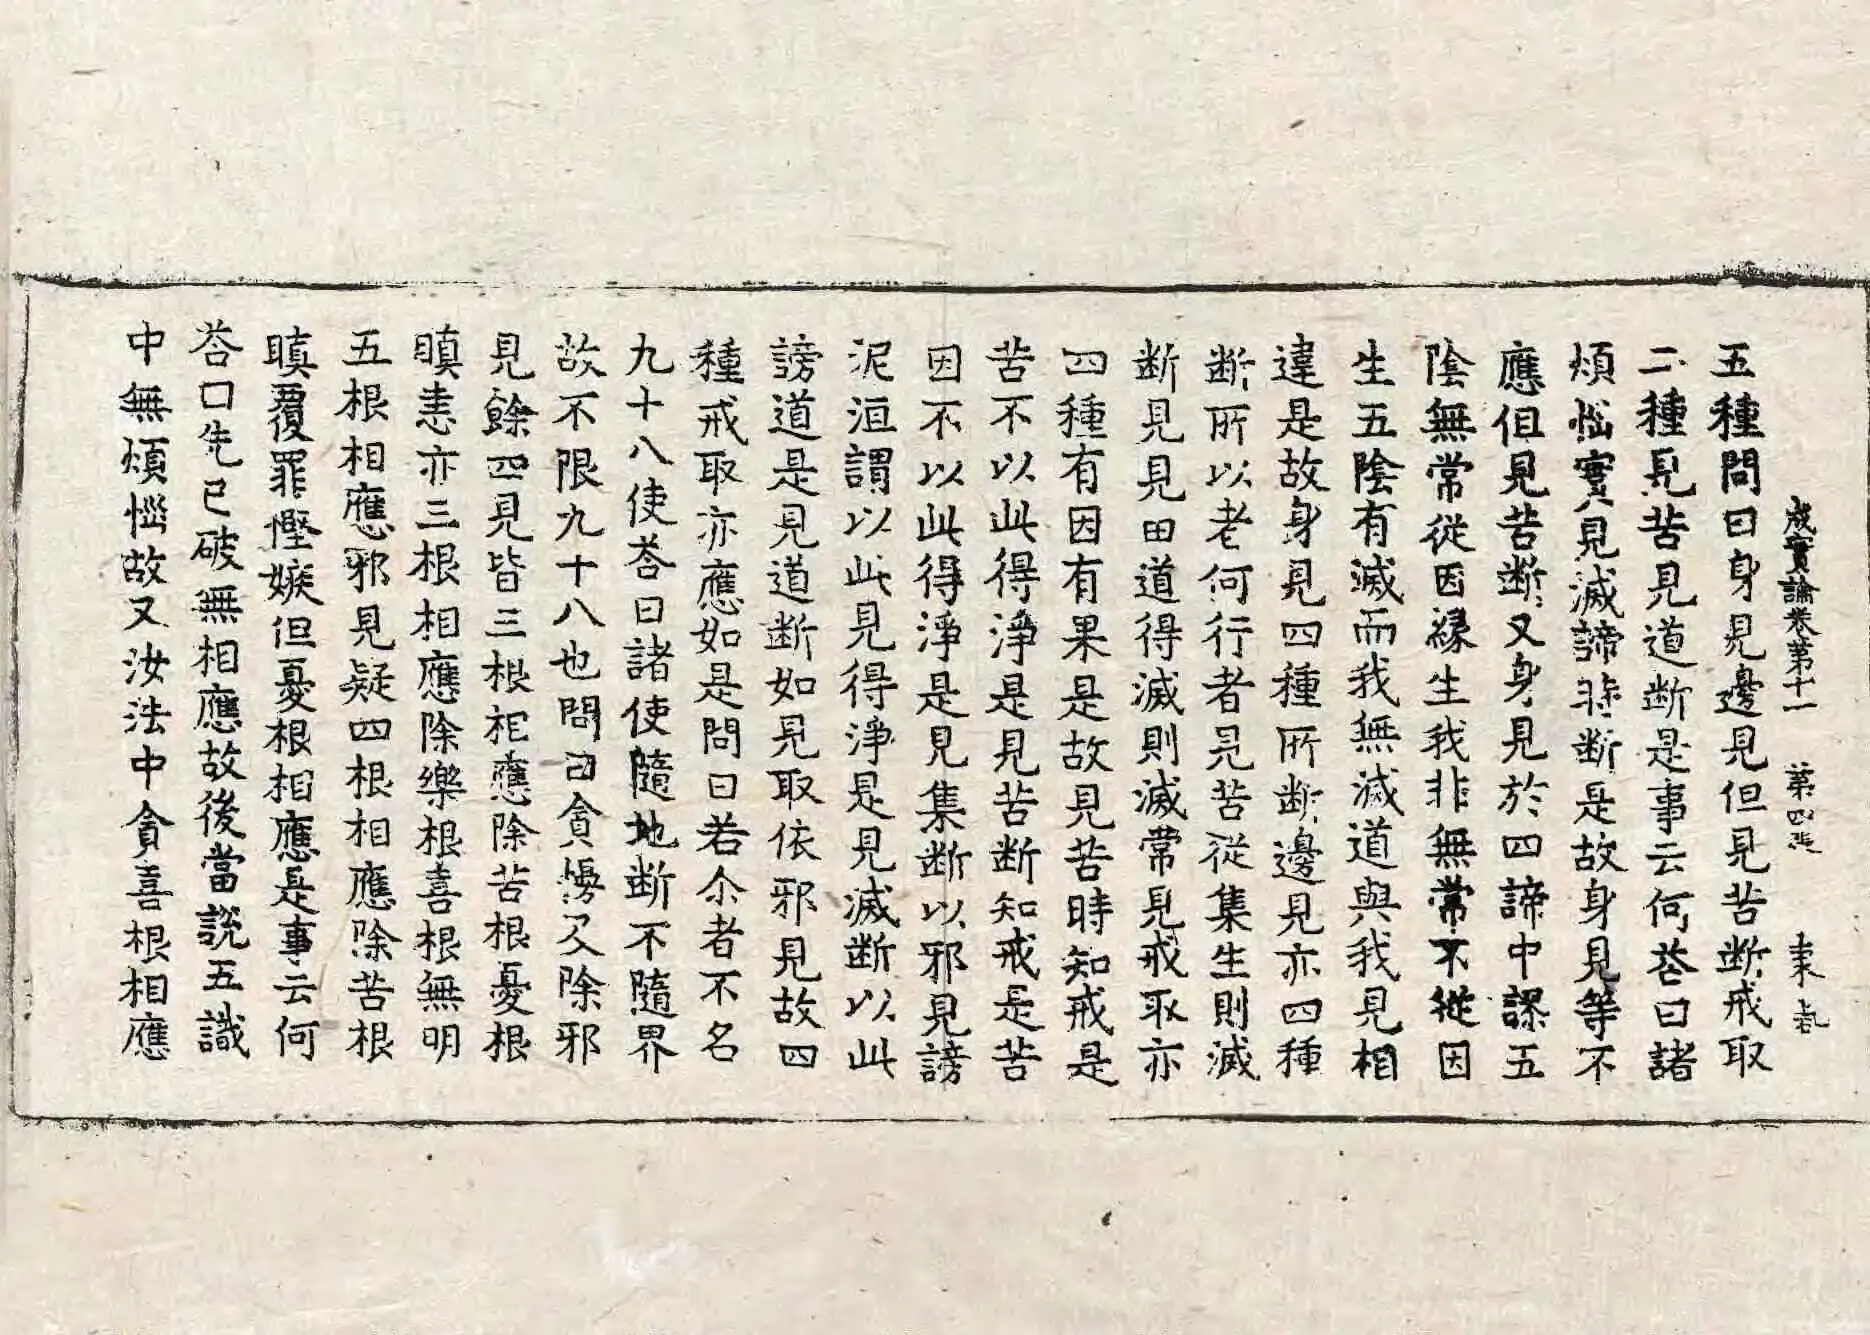 成實論卷第十一 第四張
五種問曰身見邊見但見苦断戒取
二種見苦見道断是事云何荅曰諸
煩惱實見滅諦非断是故身見等不
應但見苦断又身見於四諦中謬五
陰無常從因緣生我非無常不從因
生五陰有滅而我無滅道與我見相
違是故身見四種所断邊見亦四種
断所以老何行者見苦從集生則滅
断見見田道得滅則滅常見戒取亦
四種有因有果是故見苦時知戒是
苦不以此得淨是見苦断知戒是苦
因不以此得淨是見集断以邪見謗
泥洹謂以此見得淨是見滅断以此
謗道是見道断如見取依邪見故四
種戒取亦應如是問曰若尒者不名
九十八使荅曰諸使隨地断不隨界
故不限九十八也問曰貪慢及除邪
見餘四見皆三根相應除苦根憂根
瞋恚亦三根相應除樂根喜根無明
五根相應邪見疑四根相應除苦根
瞋覆罪慳嫉但憂根相應是事云何
荅口先已破無相應故後當說五識
中無煩惱故又汝法中貪喜根相應